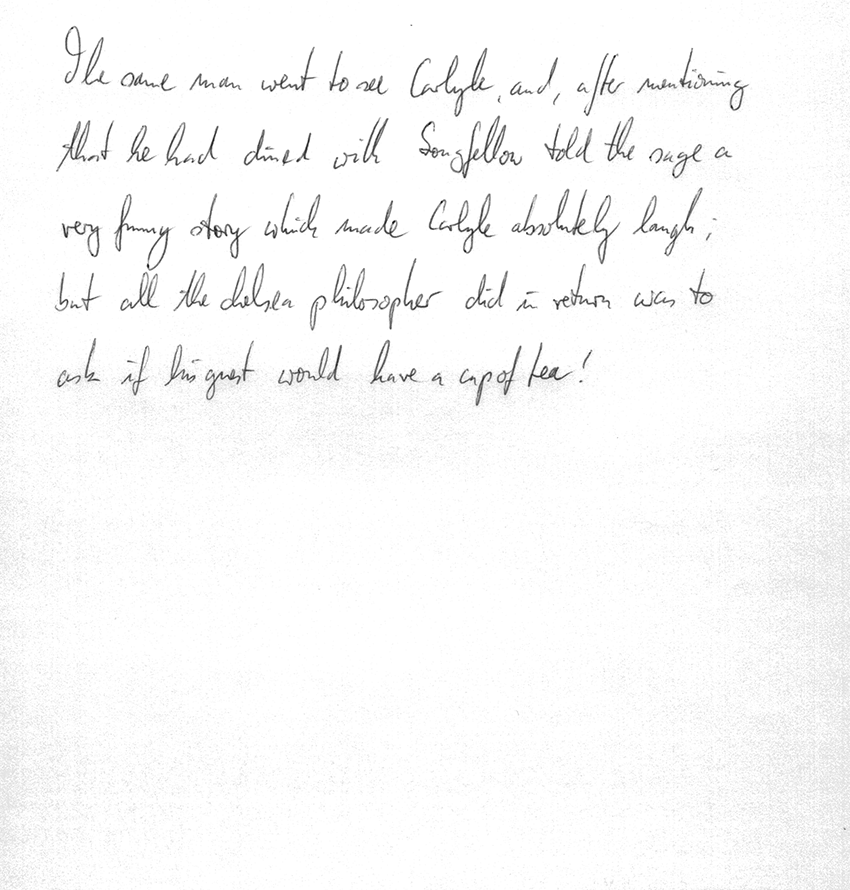 The same man went to see Carlyle, and, after mentioning
that he had dined with Longfellow told the sage a
very funny story which made Carlyle absolutely laugh;
but all the Chelsea philosopher did in return was to
ask if his guest would have a cup of tea!